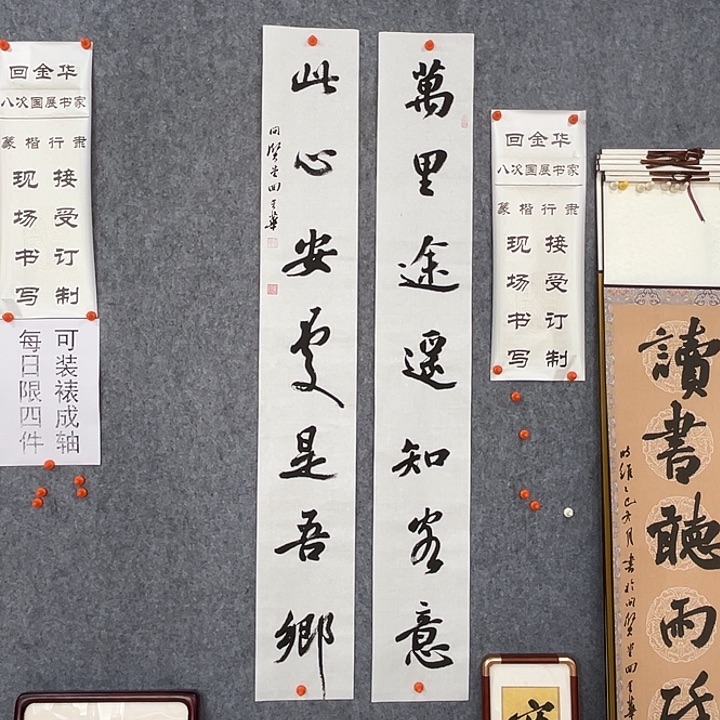 回金华
八次国展书家
篆楷行隶
接受订制
现场书写
可装裱成轴
每日限四件
萬里途遥知客意
此心安處是吾鄉
问賢堂回金華
回金华
八次国展书家
篆楷行隶
接受订制
现场书写
讀書聽雨
时維乙巳六月書於问賢堂回金華